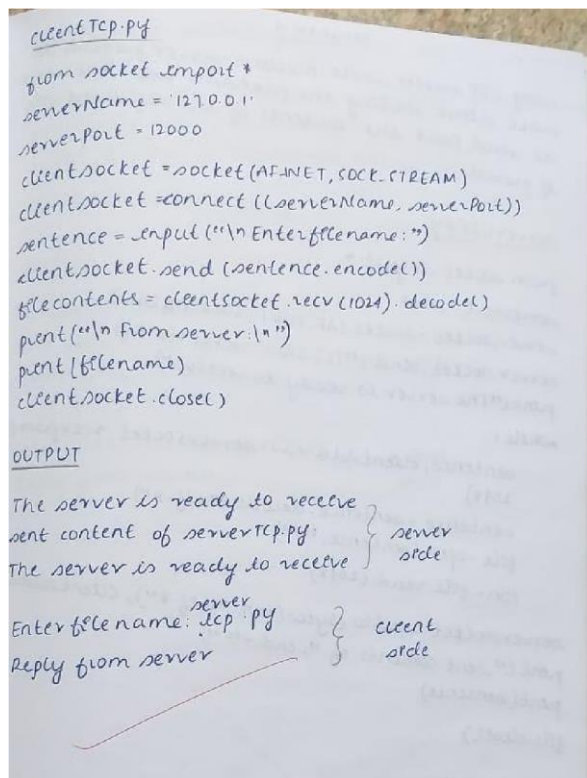 clientTcp.py
from socket import *
serverName = '127.0.0.1'
serverPort = 12000
clientsocket = socket(AF_INET, SOCK_STREAM)
clientsocket =connect ((serverName, serverPort))
sentence = input ("\n Enter filename: ")
clientsocket.send (sentence.encode())
filecontents = clientsocket.recv (1024).decode()
print ("\n From server:\n")
print (filename)
clientsocket.close()
OUTPUT
The server is ready to receive
sent content of serverTCP.py
The server is ready to receive
server side
Enter file name: server tcp.py
Reply from server
client side